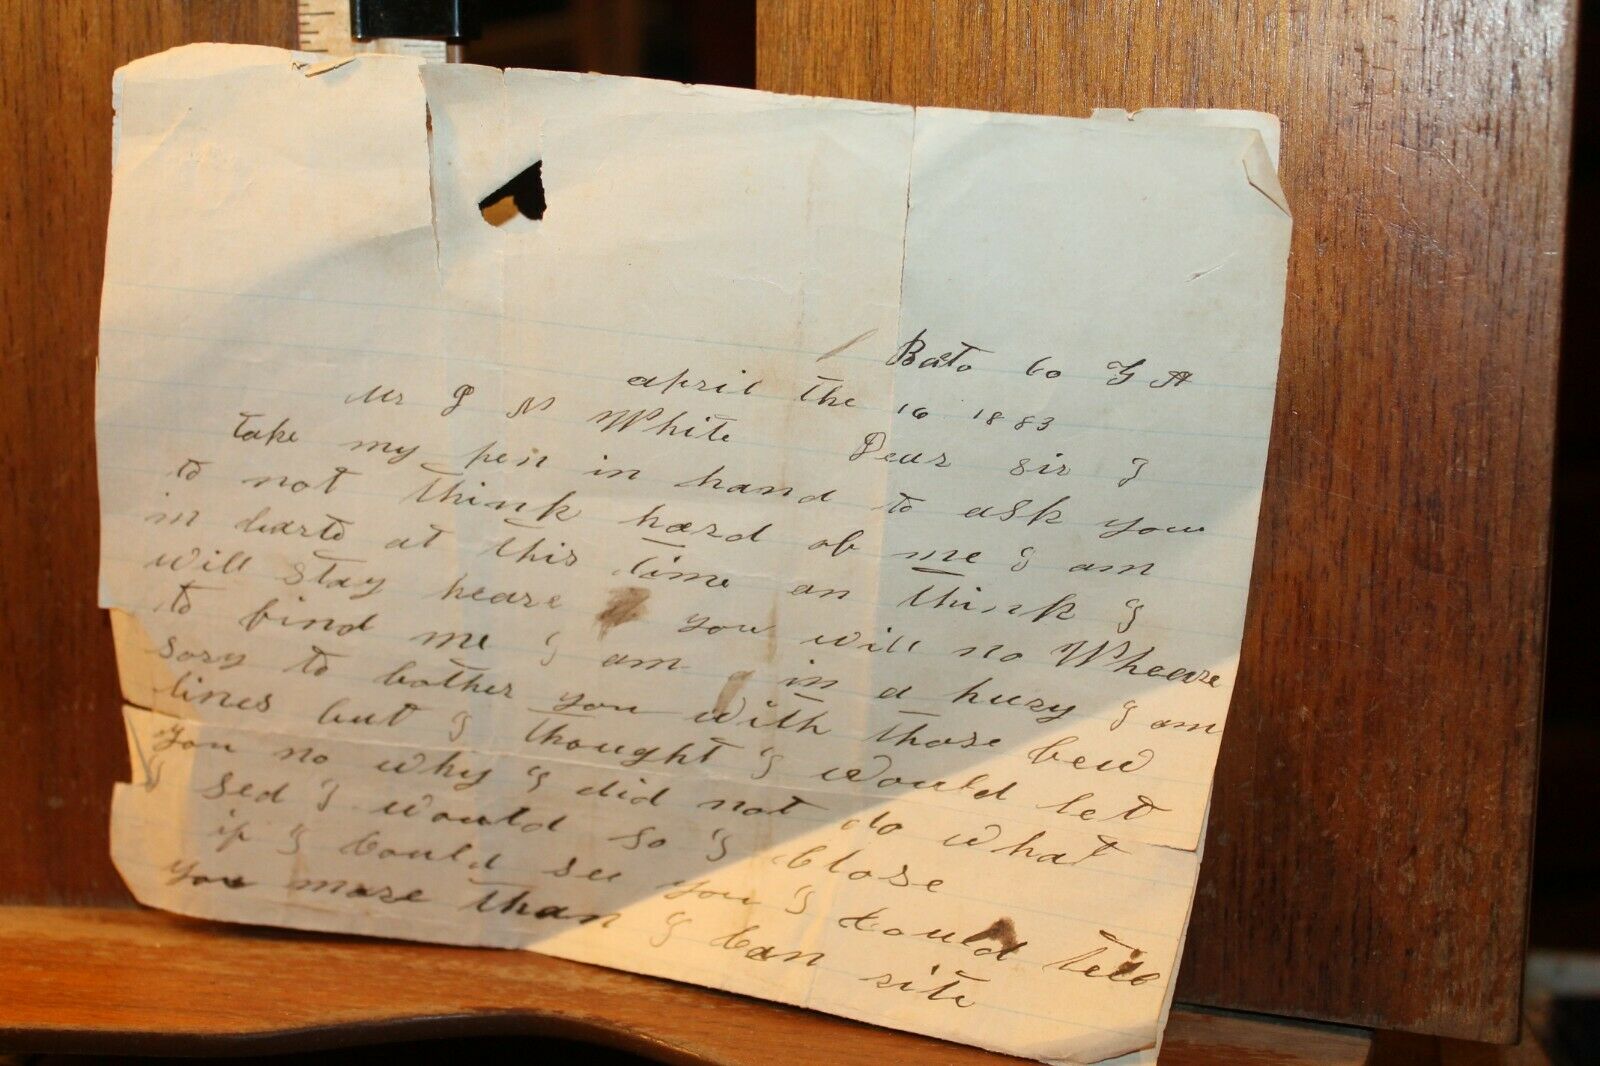 Bato Co GA
april the 16 1883
Mr J N White Dear sir I
take my pen in hand to ask you
to not think hard of me I am
in barto at this time an think I
will stay heare you will no Wheare
to find me I am in a hury I am
sory to bother you with those few
lines but I thought I would let
you no why I did not do what
I sed I would so I close
if I Could see you I Could tell
you more than I Can rite